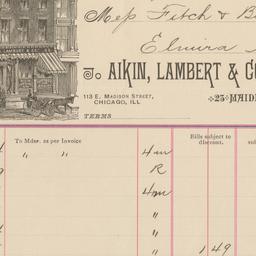 Mess Fitch & B
Elmira
To. AIKIN, LAMBERT & Co
113 E. MADISON STREET,
CHICAGO, ILL
23 MAID
TERMS
Bills subject to
discount.
su
To Mdse. as per Invoice 4m
" " R
4m
"
"
" 1 49